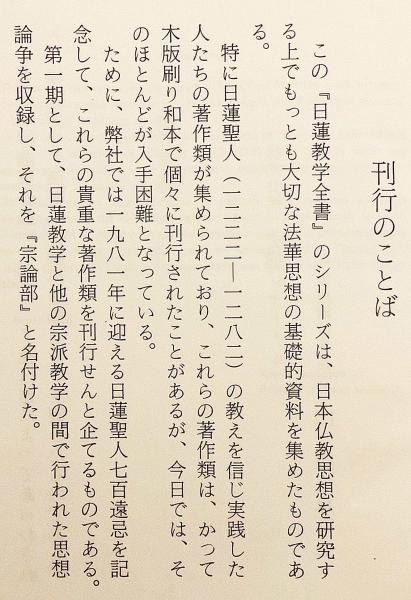 刊行のことば
この『日蓮教学全書』のシリーズは、日本仏教思想を研究す
る上でもっとも大切な法華思想の基礎的資料を集めたものであ
る。
特に日蓮聖人（一二二二―一二八二）の教えを信じ実践した
人たちの著作類が集められており、これらの著作類は、かつて
木版刷り和本で個々に刊行されたことがあるが、今日では、そ
のほとんどが入手困難となっている。
ために、弊社では一九八一年に迎える日蓮聖人七百遠忌を記
念して、これらの貴重な著作類を刊行せんと企てるものである。
第一期として、日蓮教学と他の宗派教学の間で行われた思想
論争を収録し、それを『宗論部』と名付けた。